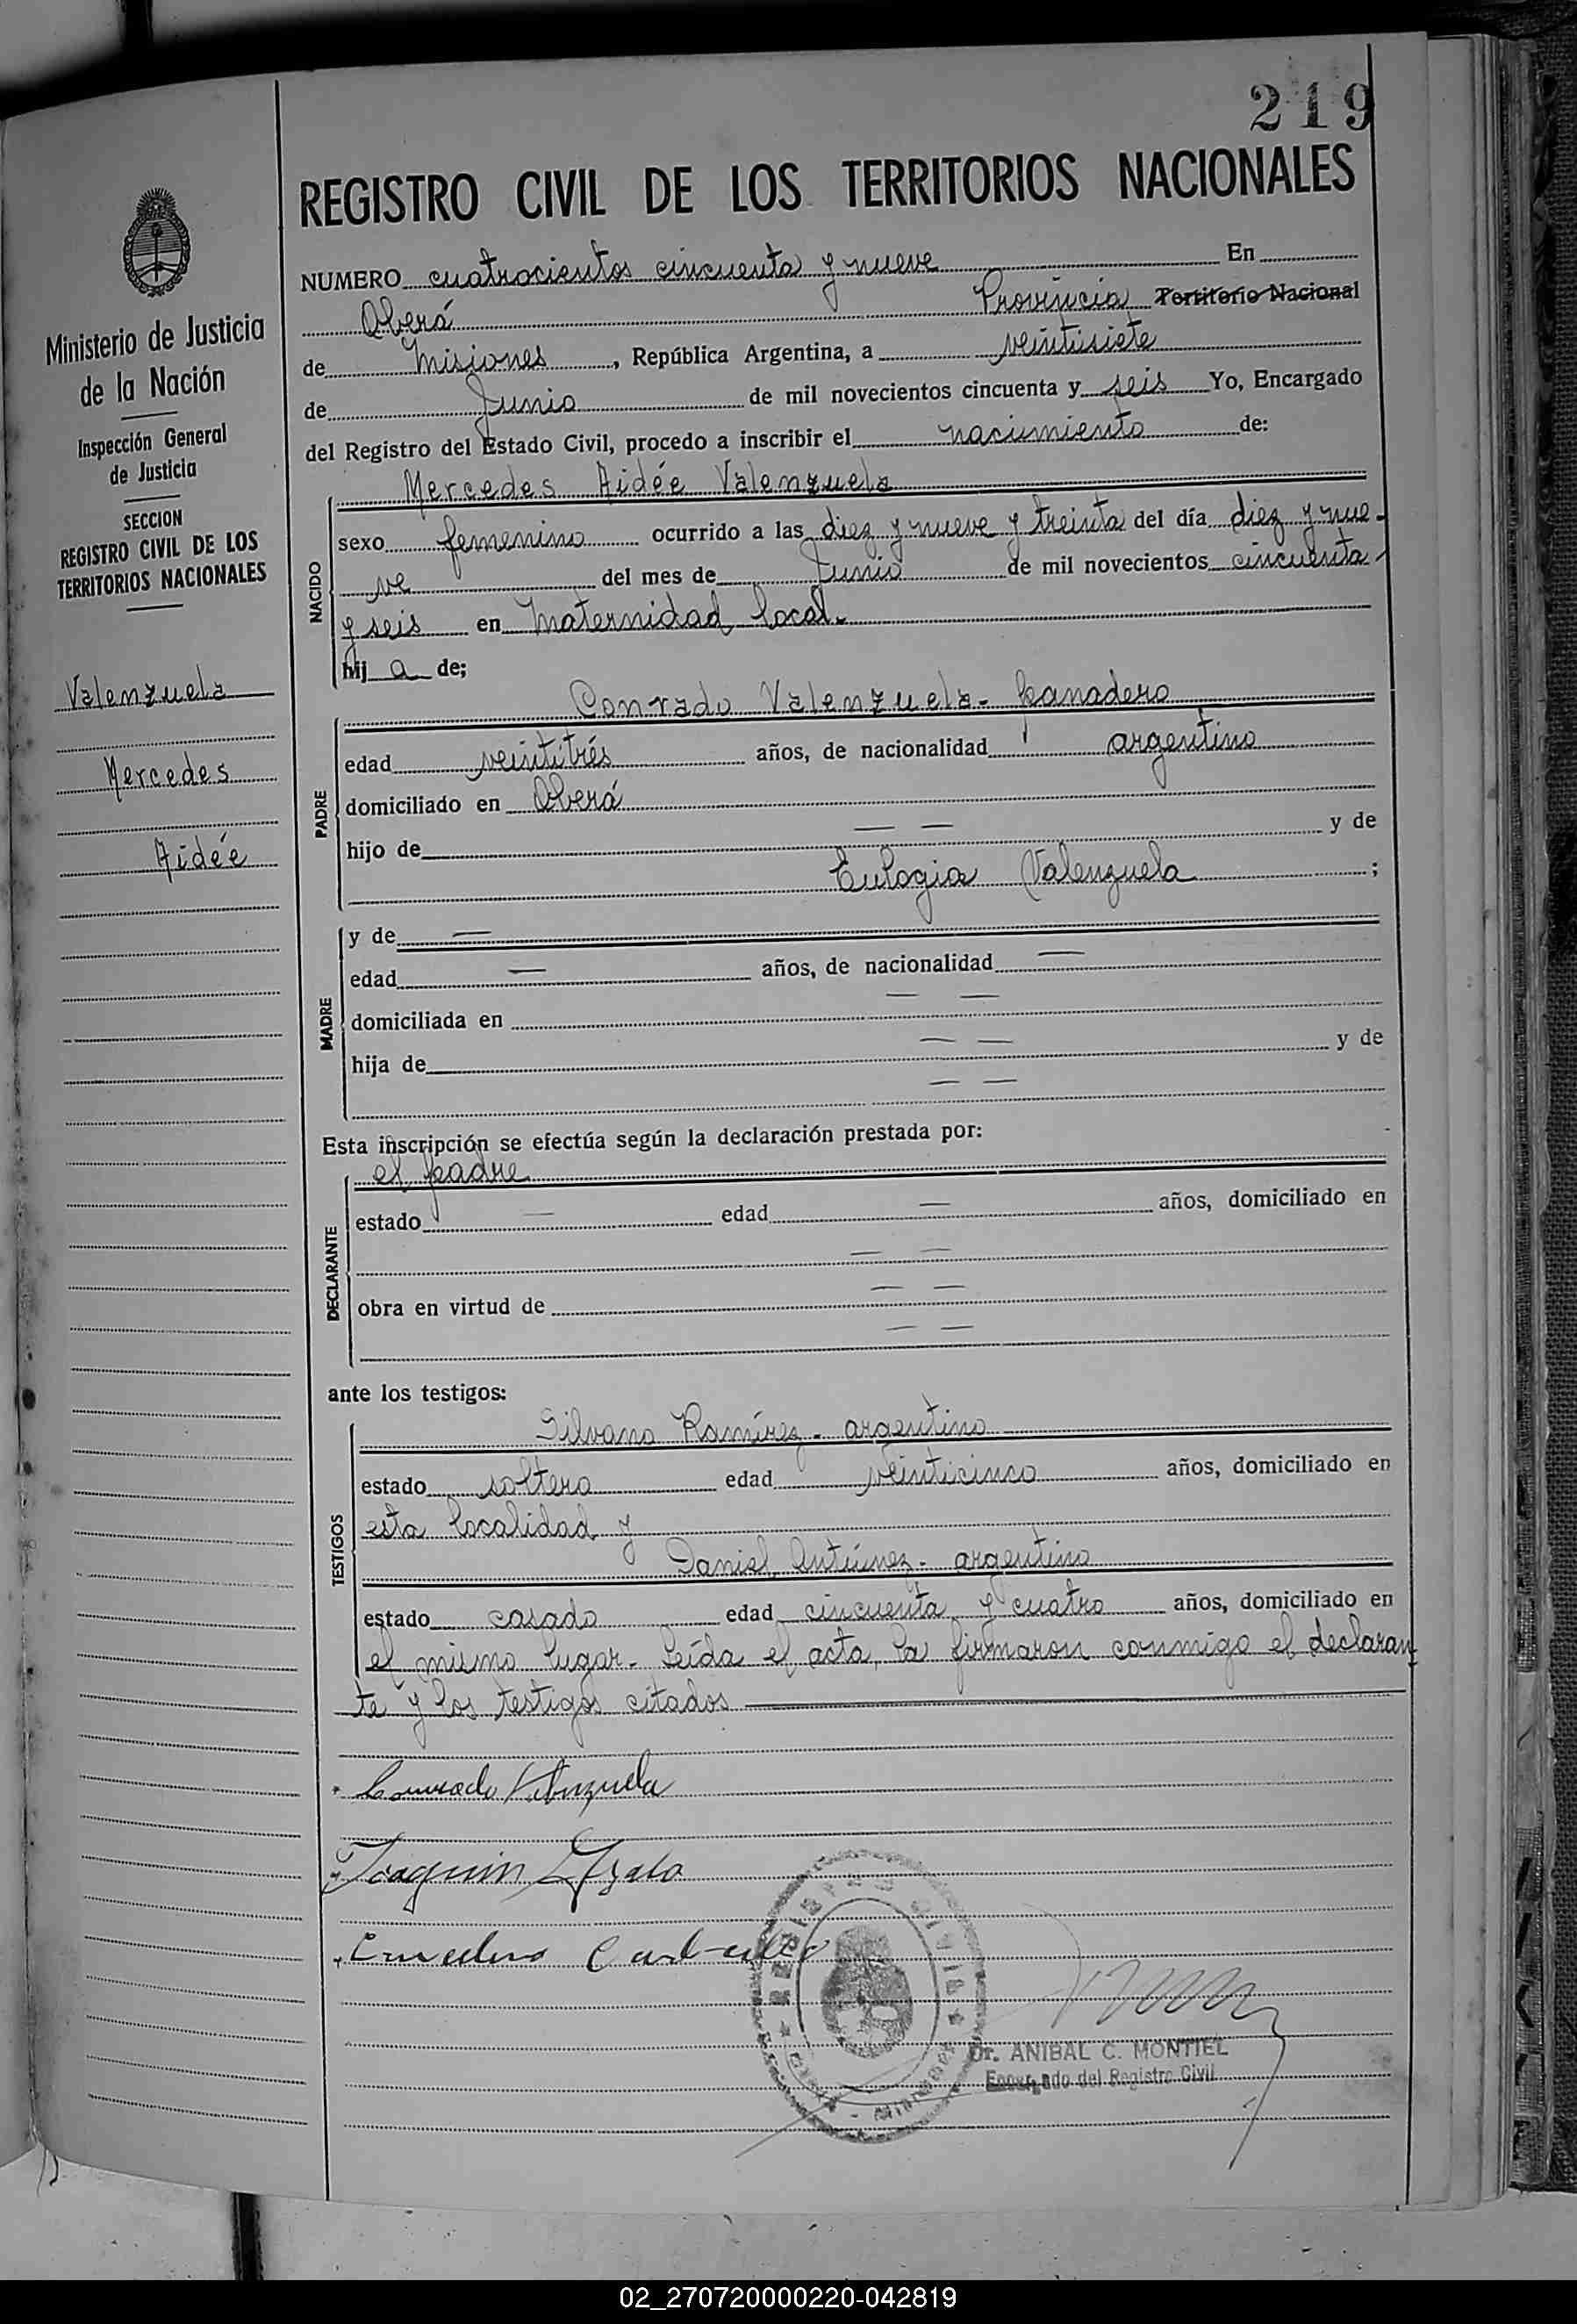 219
REGISTRO CIVIL DE LOS TERRITORIOS NACIONALES
Ministerio de Justicia
de la Nación
Inspección General
de Justicia
SECCION
REGISTRO CIVIL DE LOS
TERRITORIOS NACIONALES
Valenzuela
Mercedes
Aidée
NUMERO cuatrocientos cincuenta y nueve En
Oberá Provincia Territorio Nacional
de Misiones, República Argentina, a veintisiete
de Junio de mil novecientos cincuenta y seis Yo, Encargado
del Registro del Estado Civil, procedo a inscribir el nacimiento de:
NACIDO
Mercedes Aidée Valenzuela
sexo femenino ocurrido a las diez y nueve y treinta del día diez y nue-
ve del mes de Junio de mil novecientos cincuenta
y seis en Maternidad local.
hij a de;
PADRE
Conrado Valenzuela - panadero
edad veintitrés años, de nacionalidad argentino
domiciliado en Oberá
hijo de — — y de
Eulogia Valenzuela ;
MADRE
y de —
edad — años, de nacionalidad —
domiciliada en — —
hija de — — y de
— —
Esta inscripción se efectúa según la declaración prestada por:
DECLARANTE
el padre
estado — edad — años, domiciliado en
— —
obra en virtud de — —
— —
ante los testigos:
TESTIGOS
Silvano Ramírez - argentino
estado soltero edad veinticinco años, domiciliado en
esta localidad y
Daniel Antúnez - argentino
estado casado edad cincuenta y cuatro años, domiciliado en
el mismo lugar. Leída el acta, la firmaron conmigo el declaran
te y los testigos citados
Conrado Valenzuela
Joaquin
REGISTRO CIVIL
Dr. ANIBAL C. MONTIEL
Encargado del Registro Civil
02_270720000220-042819